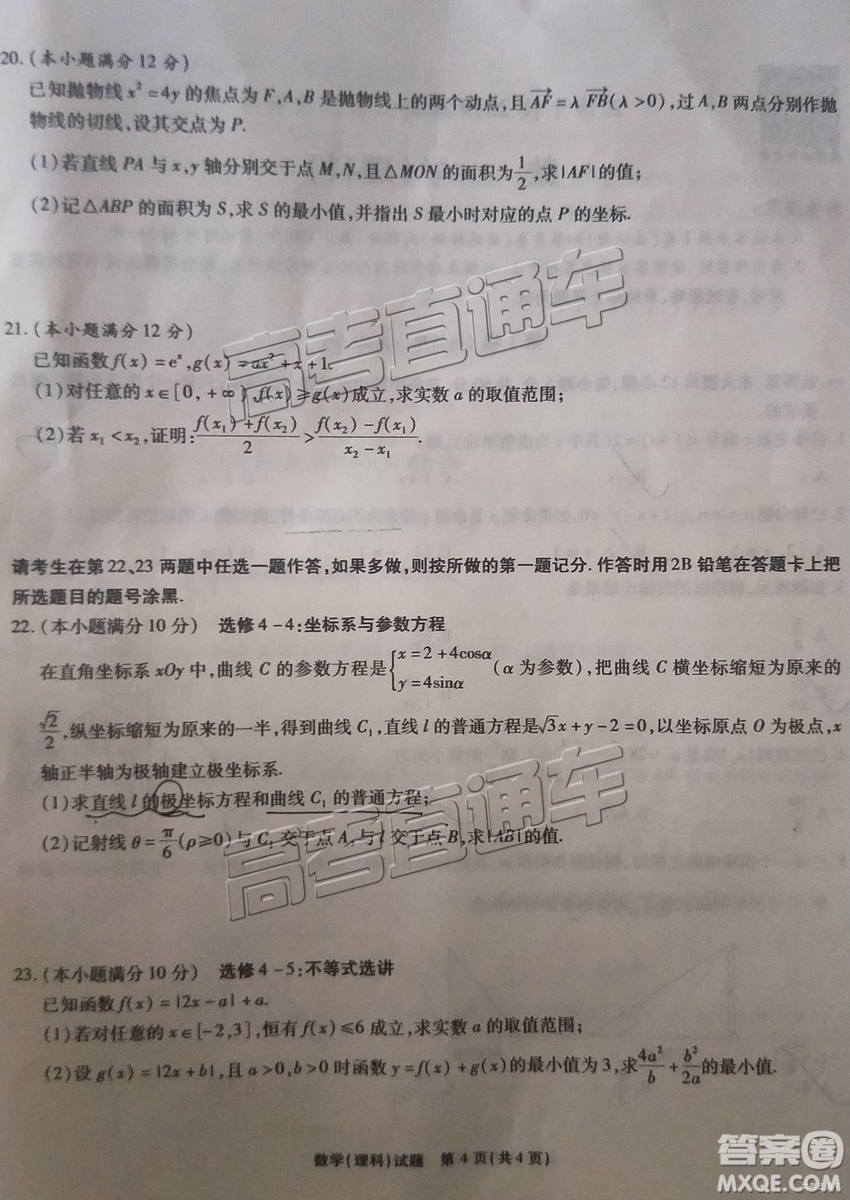 20.(本小题满分12分)
已知抛物线x²=4y的焦点为F,A,B是抛物线上的两个动点,且AF=λFB(λ>0),过A,B两点分别作抛
物线的切线,设其交点为P.
(1)若直线PA与x,y轴分别交于点M,N,且△MON的面积为1/2,求|AF|的值;
(2)记△ABP的面积为S,求S的最小值,并指出S最小时对应的点P的坐标.
高考直通车
21.(本小题满分12分)
已知函数f(x)=eˣ,g(x)=ax²+x+1.
(1)对任意的x∈[0,+∞),f(x)≥g(x)成立,求实数a的取值范围;
(2)若x₁<x₂,证明:(f(x₁)+f(x₂))/2>(f(x₂)-f(x₁))/(x₂-x₁).
请考生在第22、23两题中任选一题作答,如果多做,则按所做的第一题记分.作答时用2B铅笔在答题卡上把
所选题目的题号涂黑.
22.(本小题满分10分) 选修4-4:坐标系与参数方程
在直角坐标系xOy中,曲线C的参数方程是{x=2+4cosα y=4sinα(α为参数),把曲线C横坐标缩短为原来的
√2/2,纵坐标缩短为原来的一半,得到曲线C₁,直线l的普通方程是√3x+y-2=0,以坐标原点O为极点,x
轴正半轴为极轴建立极坐标系.
(1)求直线l的极坐标方程和曲线C₁的普通方程;
(2)记射线θ=π/6(ρ≥0)与C₁交于点A,与l交于点B,求|AB|的值.
高考直通车
23.(本小题满分10分) 选修4-5:不等式选讲
已知函数f(x)=|2x-a|+a.
(1)若对任意的x∈[-2,3],恒有f(x)≤6成立,求实数a的取值范围;
(2)设g(x)=|2x+b|,且a>0,b>0时函数y=f(x)+g(x)的最小值为3,求4a²/b+b²/2a的最小值.
数学(理科)试题 第4页(共4页)
答案圈